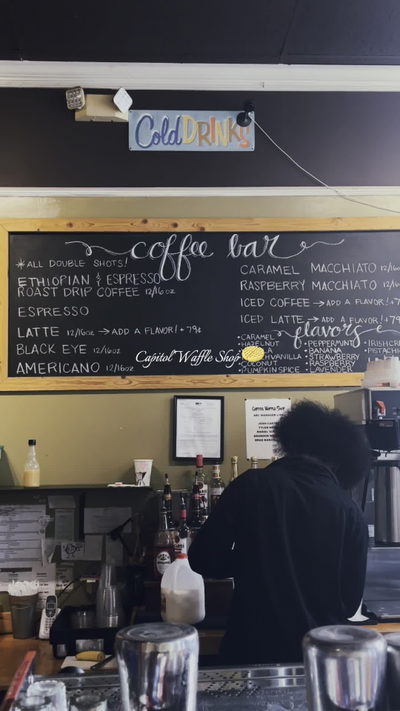 Cold DRINKS
coffee bar
*ALL DOUBLE SHOTS!
ETHIOPIAN & ESPRESSO
ROAST DRIP COFFEE 12/16oz
ESPRESSO
LATTE 12/16oz → ADD A FLAVOR! + 79¢
BLACK EYE 12/16oz
AMERICANO 12/16oz
CARAMEL MACCHIATO 12/16
RASPBERRY MACCHIATO 12/16
ICED COFFEE → ADD A FLAVOR! +7
ICED LATTE → ADD A FLAVOR! +79
flavors
•CARAMEL
•HAZELNUT
VANILLA
•COCONUT
•PUMPKIN SPICE
•PEPPERMINT
•BANANA
•STRAWBERRY
•RASPBERRY
•LAVENDER
•IRISH CR
•PISTACH
Capitol Waffle Shop